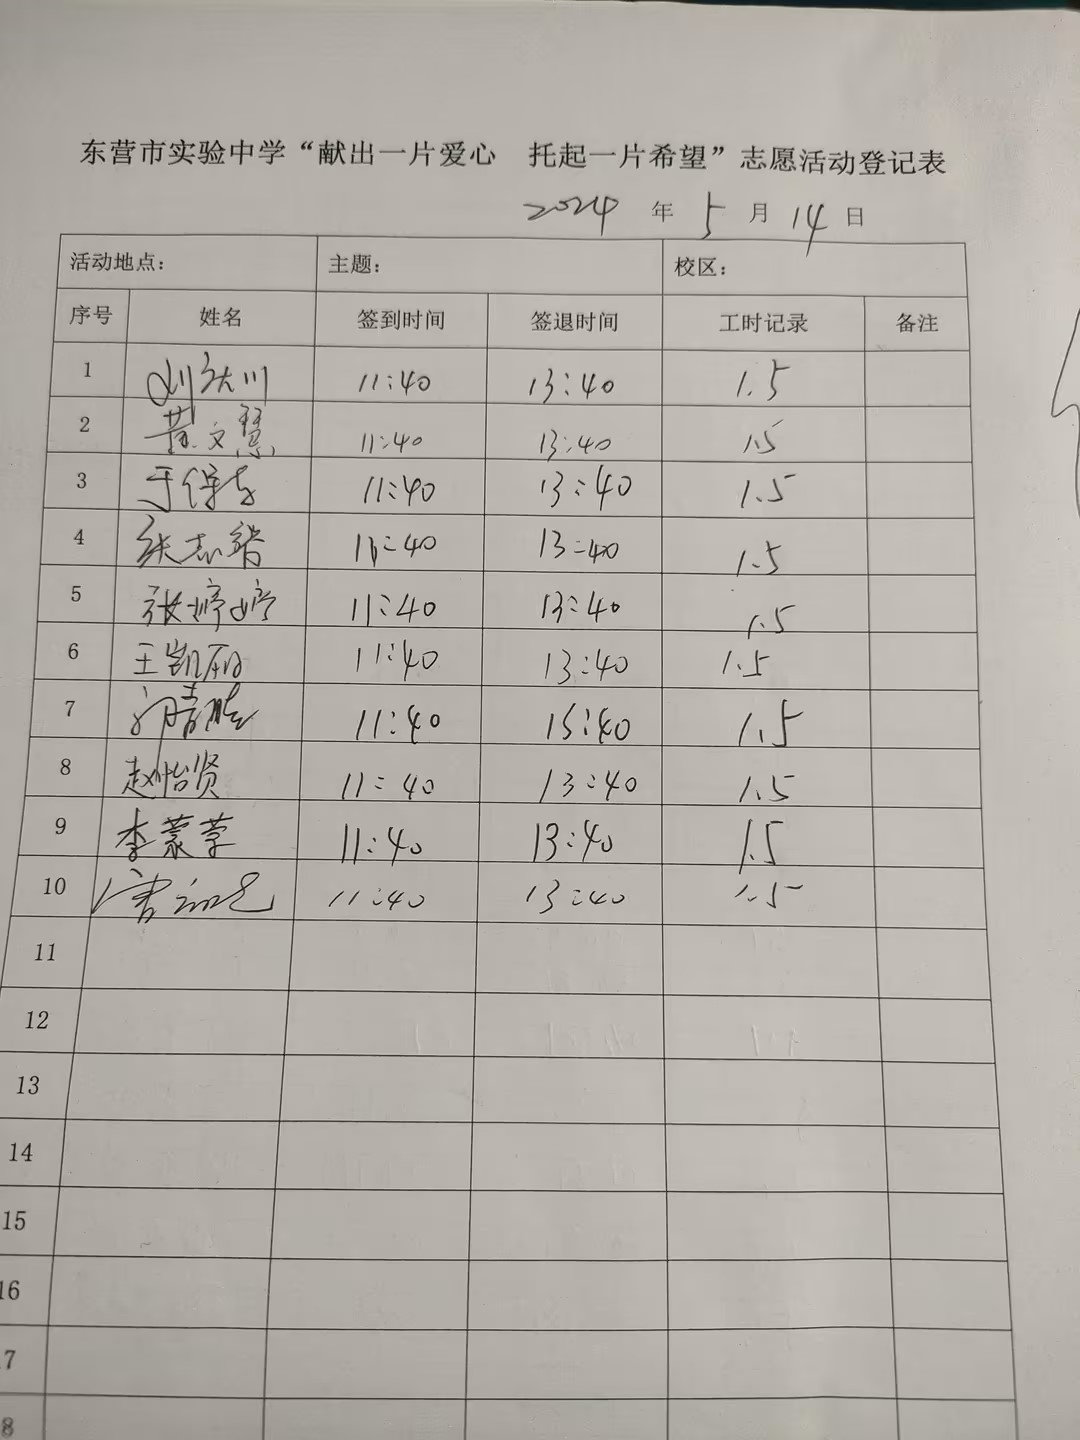 东营市实验中学“献出一片爱心 托起一片希望”志愿活动登记表
2024 年 5 月 14 日
活动地点： 主题： 校区：
序号 姓名 签到时间 签退时间 工时记录 备注
1 11:40 13:40 1.5
2 黄文慧 11:40 13:40 1.5
3 于保友 11:40 13:40 1.5
4 张志端 11:40 13:40 1.5
5 张婷婷 11:40 13:40 1.5
6 王凯丽 11:40 13:40 1.5
7 11:40 13:40 1.5
8 赵怡贤 11:40 13:40 1.5
9 李蒙蒙 11:40 13:40 1.5
10 11:40 13:40 1.5
11
12
13
14
15
16
17
18